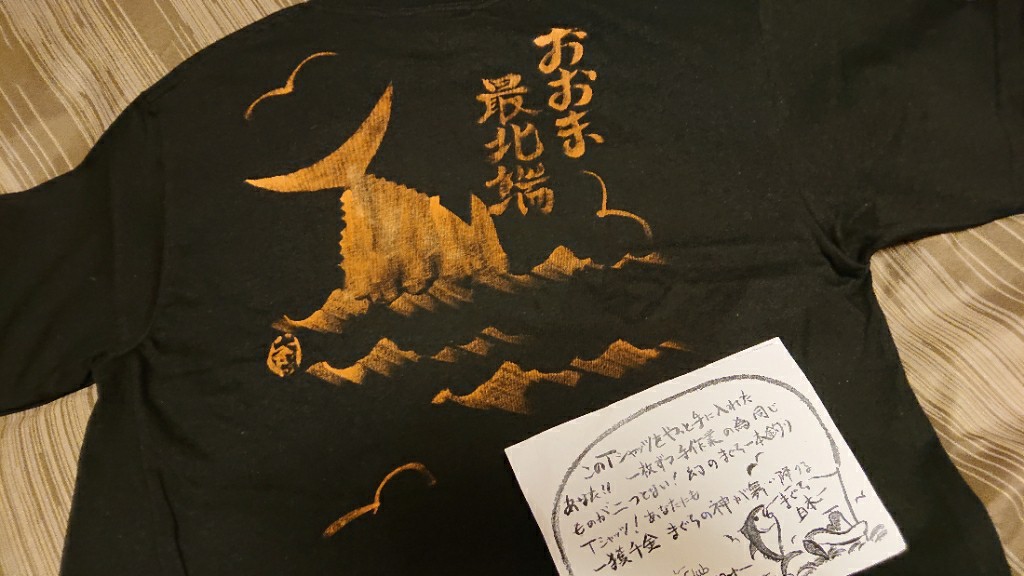 おおま
最北端
このTシャツをやっと手に入れた
あなた!! 一枚ずつ手作業の為同じ
ものが二つとない! 幻のまぐろ一本釣り
Tシャツ! あなたにも
まぐろの神が舞い降りる
一獲千金
まぐろ
Club